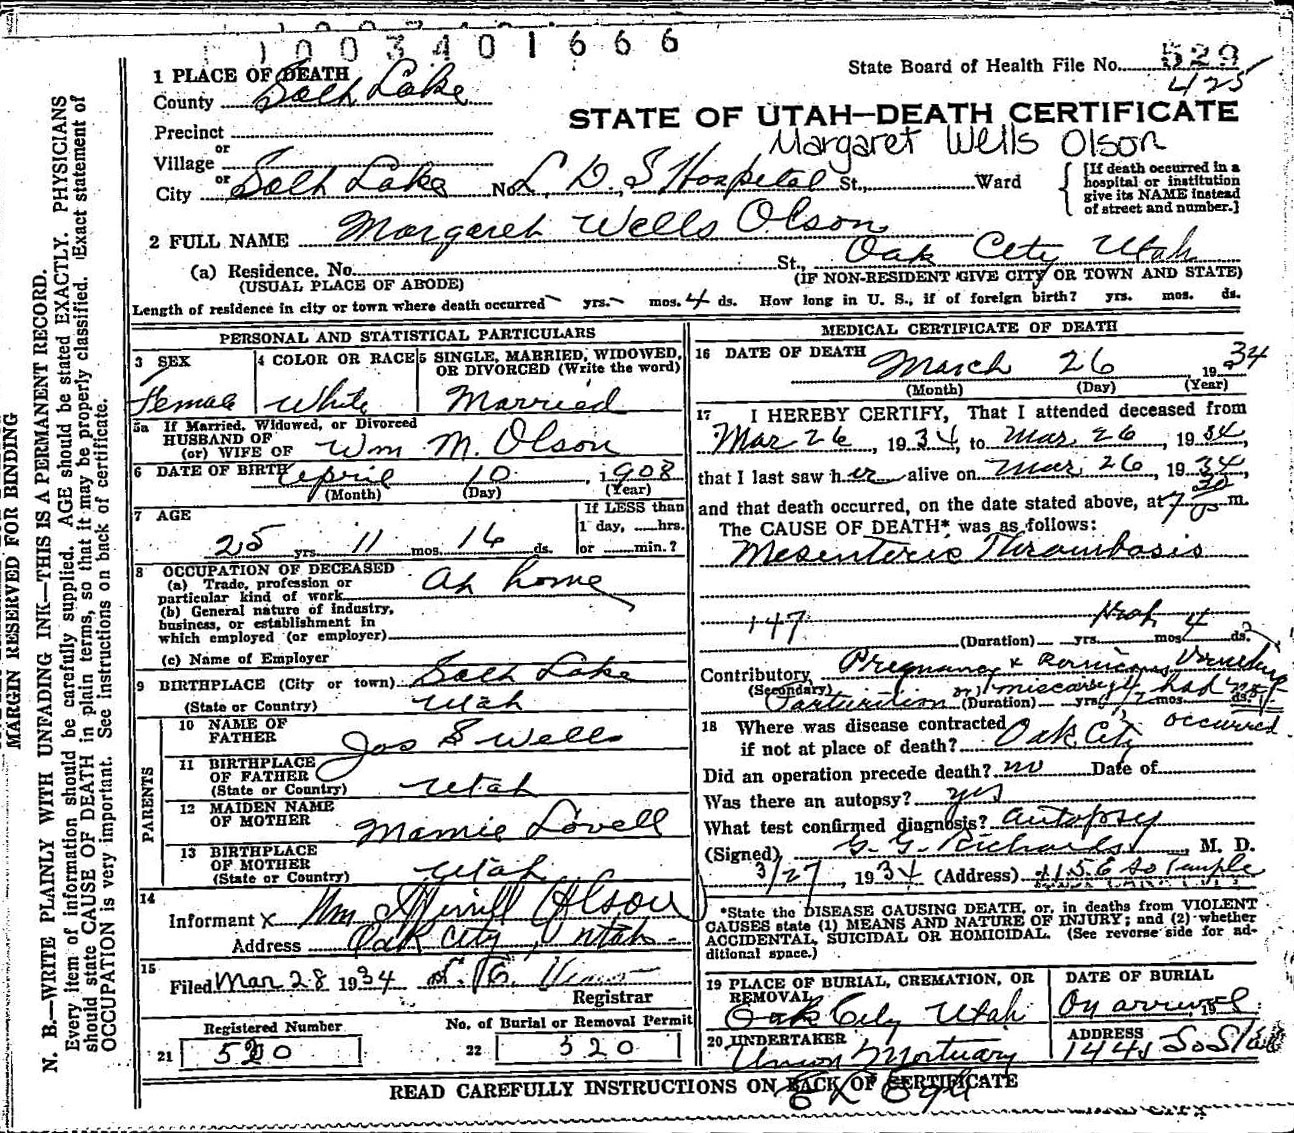 1003401666
State Board of Health File No. 529
425
1 PLACE OF DEATH
County Salt Lake
STATE OF UTAH—DEATH CERTIFICATE
Margaret Wells Olson
Precinct
or
Village
or
City Salt Lake No. L. D. S Hospital St., Ward
[If death occurred in a
hospital or institution
give its NAME instead
of street and number.]
2 FULL NAME Margaret Wells Olson
(a) Residence. No. St., Oak City Utah
(USUAL PLACE OF ABODE) (IF NON-RESIDENT GIVE CITY OR TOWN AND STATE)
Length of residence in city or town where death occurred yrs. mos. 4 ds. How long in U. S., if of foreign birth? yrs. mos. ds.
PERSONAL AND STATISTICAL PARTICULARS
3 SEX
Female
4 COLOR OR RACE
White
5 SINGLE, MARRIED, WIDOWED,
OR DIVORCED (Write the word)
Married
5a If Married, Widowed, or Divorced
HUSBAND OF
(or) WIFE OF Wm M. Olson
6 DATE OF BIRTH April 10, 1908
(Month) (Day) (Year)
7 AGE
25 yrs. 11 mos. 16 ds.
If LESS than
1 day, hrs.
or min.?
8 OCCUPATION OF DECEASED
(a) Trade, profession or
particular kind of work At home
(b) General nature of industry,
business, or establishment in
which employed (or employer)
(c) Name of Employer
9 BIRTHPLACE (City or town) Salt Lake
(State or Country) Utah
PARENTS
10 NAME OF
FATHER Jos S Wells
11 BIRTHPLACE
OF FATHER
(State or Country) Utah
12 MAIDEN NAME
OF MOTHER Mamie Lovell
13 BIRTHPLACE
OF MOTHER
(State or Country) Utah
14
Informant x Wm Merrill Olson
Address Oak City, Utah
15
Filed Mar 28 1934
Registrar
Registered Number
21 520
No. of Burial or Removal Permit
22 520
MEDICAL CERTIFICATE OF DEATH
16 DATE OF DEATH March 26 1934
(Month) (Day) (Year)
17 I HEREBY CERTIFY, That I attended deceased from
Mar 26, 1934, to Mar. 26, 1934,
that I last saw her alive on Mar. 26, 1934,
and that death occurred, on the date stated above, at 7 30 m.
The CAUSE OF DEATH* was as follows:
Mesenteric Thrombosis
147 Prob 4
(Duration) yrs. mos. ds.
Contributory Pregnancy & Pernicious Vomiting
(Secondary) Parturition or miscarriage had not
(Duration) yrs. mos. ds.
occurred
18 Where was disease contracted
if not at place of death? Oak City
Did an operation precede death? no Date of
Was there an autopsy? yes
What test confirmed diagnosis? Autopsy
(Signed) G. G. Richards, M. D.
3/27, 1934 (Address) 115 E So Temple
*State the DISEASE CAUSING DEATH, or, in deaths from VIOLENT
CAUSES state (1) MEANS AND NATURE OF INJURY; and (2) whether
ACCIDENTAL, SUICIDAL OR HOMICIDAL. (See reverse side for ad-
ditional space.)
19 PLACE OF BURIAL, CREMATION, OR
REMOVAL
Oak City Utah
DATE OF BURIAL
On arrival, 19
20 UNDERTAKER
Union Mortuary
ADDRESS
READ CAREFULLY INSTRUCTIONS ON BACK OF CERTIFICATE
MARGIN RESERVED FOR BINDING
N. B.—WRITE PLAINLY WITH UNFADING INK—THIS IS A PERMANENT RECORD.
Every item of information should be carefully supplied. AGE should be stated EXACTLY. PHYSICIANS
should state CAUSE OF DEATH in plain terms, so that it may be properly classified. Exact statement of
OCCUPATION is very important. See instructions on back of certificate.